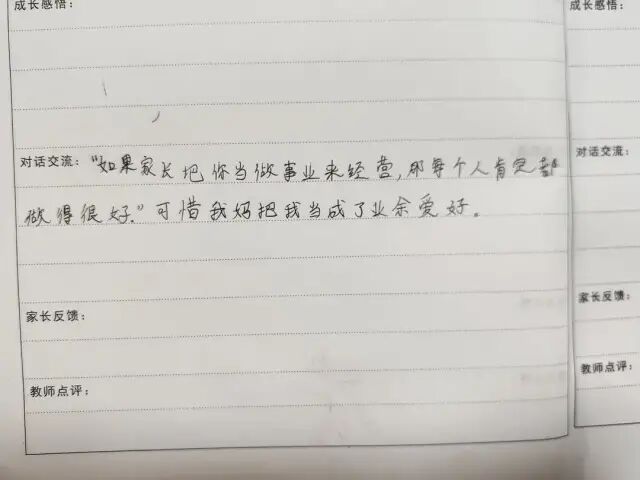 成长感悟：
成长感悟：
对话交流："如果家长把你当做事业来经营,那每个人肯定都
做得很好."可惜我妈把我当成了业余爱好。
对话交流：
家长反馈：
家长反馈：
教师点评：
教师点评：